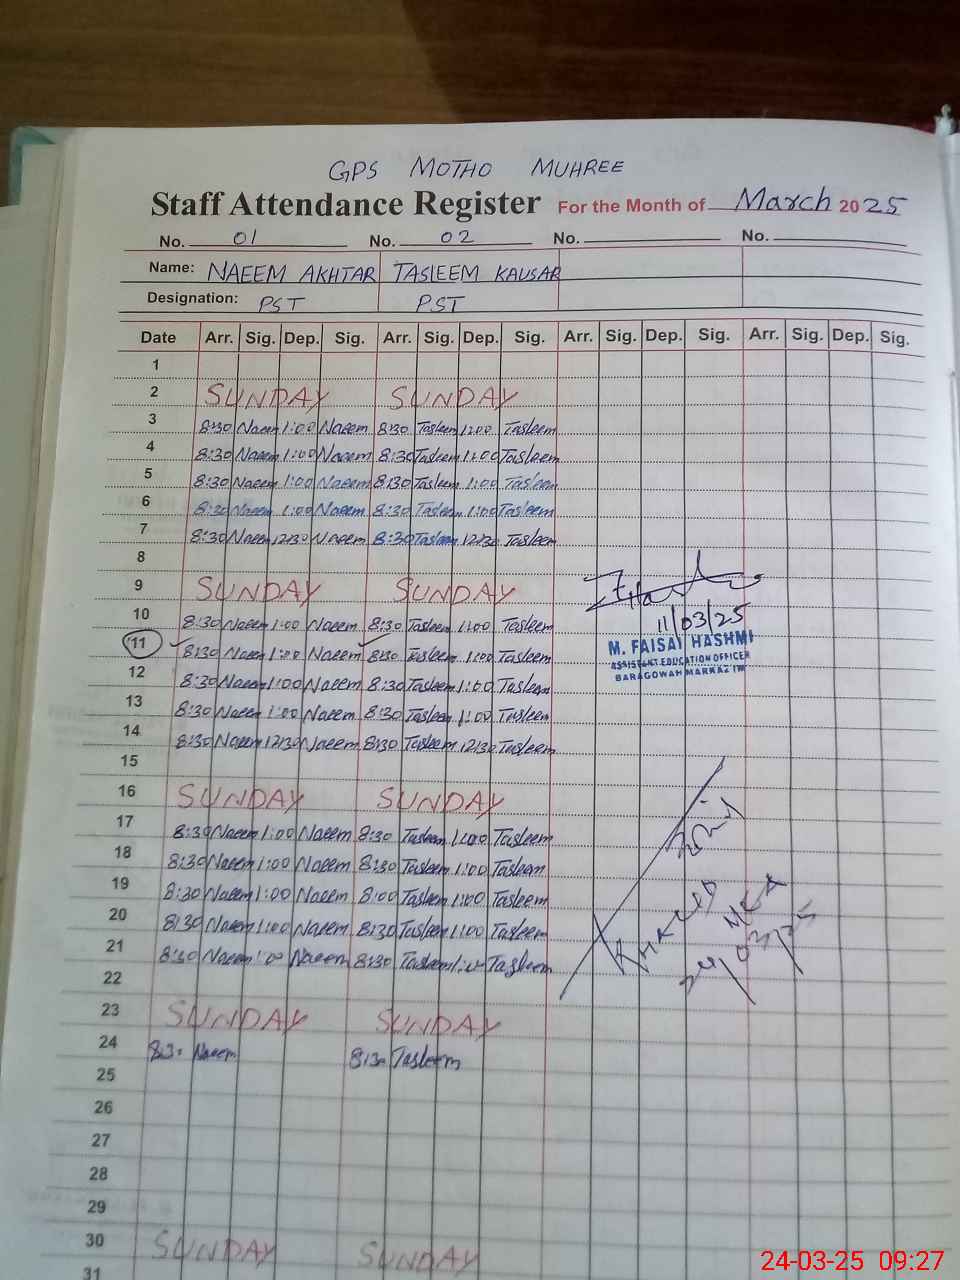 GPS MOTHO MUHREE
Staff Attendance Register For the Month of March 2025
No. 01 No. 02 No. No.
Name: NAEEM AKHTAR TASLEEM KAUSAR
Designation: PST PST
Date Arr. Sig. Dep. Sig. Arr. Sig. Dep. Sig. Arr. Sig. Dep. Sig. Arr. Sig. Dep. Sig.
1
2 SUNDAY SUNDAY
3 8:30 Naeem 1:00 Naeem 8:30 Tasleem 1:00 Tasleem
4 8:30 Naeem 1:00 Naeem 8:30 Tasleem 1:00 Tasleem
5 8:30 Naeem 1:00 Naeem 8:30 Tasleem 1:00 Tasleem
6 8:30 Naeem 1:00 Naeem 8:30 Tasleem 1:00 Tasleem
7 8:30 Naeem 12:30 Naeem 8:30 Tasleem 12:30 Tasleem
8
9 SUNDAY SUNDAY
10 8:30 Naeem 1:00 Naeem 8:30 Tasleem 1:00 Tasleem
11/03/25
11 8:30 Naeem 1:00 Naeem 8:30 Tasleem 1:00 Tasleem
M. FAISAL HASHMI
ASSISTANT EDUCATION OFFICER
BARAGOWAH MARKAZ
12 8:30 Naeem 1:00 Naeem 8:30 Tasleem 1:00 Tasleem
13 8:30 Naeem 1:00 Naeem 8:30 Tasleem 1:00 Tasleem
14 8:30 Naeem 12:30 Naeem 8:30 Tasleem 12:30 Tasleem
15
16 SUNDAY SUNDAY
17 8:30 Naeem 1:00 Naeem 8:30 Tasleem 1:00 Tasleem
18 8:30 Naeem 1:00 Naeem 8:30 Tasleem 1:00 Tasleem
19 8:30 Naeem 1:00 Naeem 8:00 Tasleem 1:00 Tasleem
20 8:30 Naeem 1:00 Naeem 8:30 Tasleem 1:00 Tasleem
21 8:30 Naeem 1:00 Naeem 8:30 Tasleem 1:00 Tasleem
KHALID
MEA
24/03/25
22
23 SUNDAY SUNDAY
24 8:30 Naeem 8:30 Tasleem
25
26
27
28
29
30 SUNDAY SUNDAY
31
24-03-25 09:27